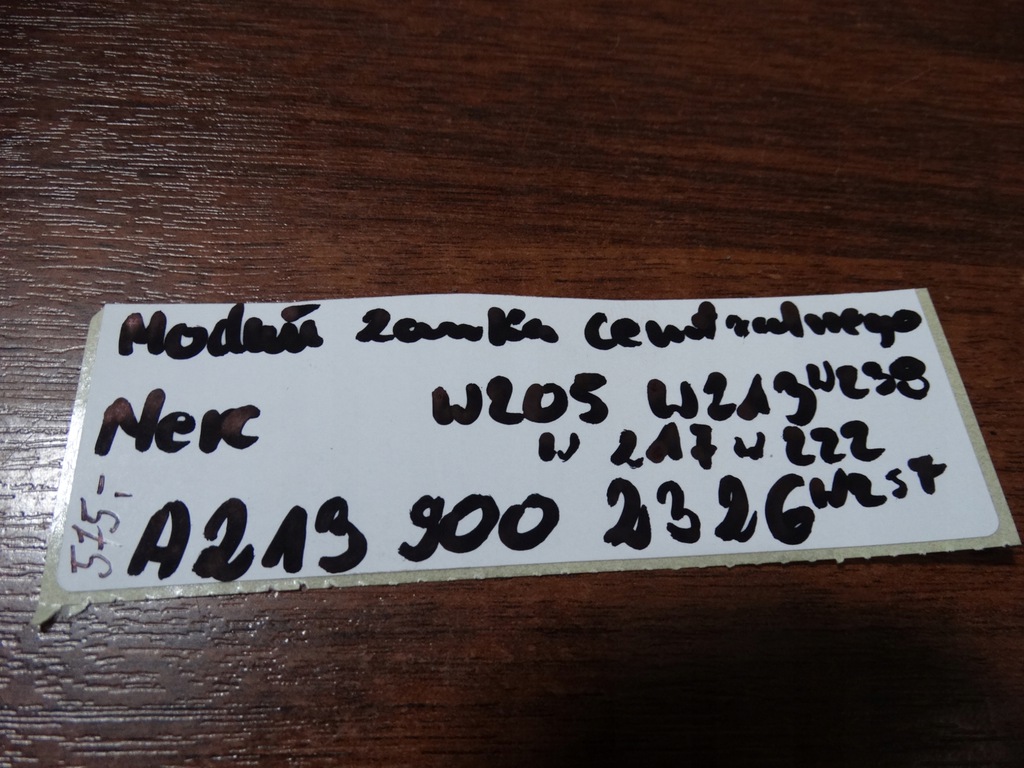 Moduł zamka centralnego
Merc W205 W213 W238
W 217 W 222
A213 900 2326 W257
575,-